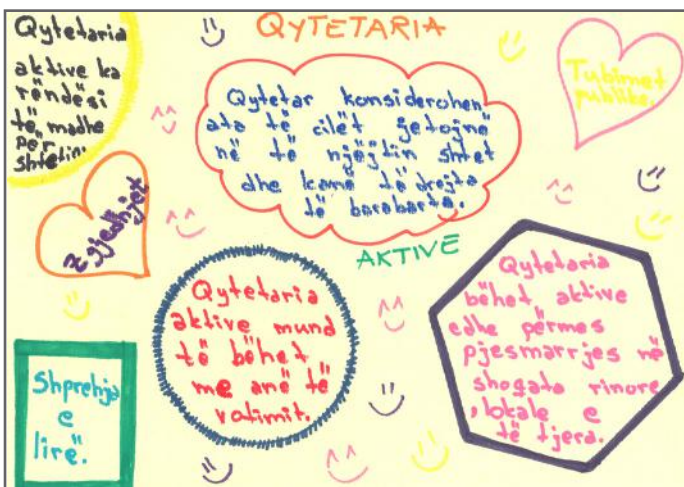 QYTETARIA
Qytetaria
aktive ka
rëndësi
të madhe
për
shtetin.
Qytetar konsiderohen
ata të cilët jetojnë
në të njëjtin shtet
dhe kanë të drejta
të barabarta.
AKTIVE
Tubimet
publike.
Zgjedhjet
Qytetaria
aktive mund
të bëhet
me anë të
votimit.
Qytetaria
bëhet aktive
edhe përmes
pjesmarrjes në
shoqata rinore
,lokale e
të tjera.
Shprehja
e
lirë.